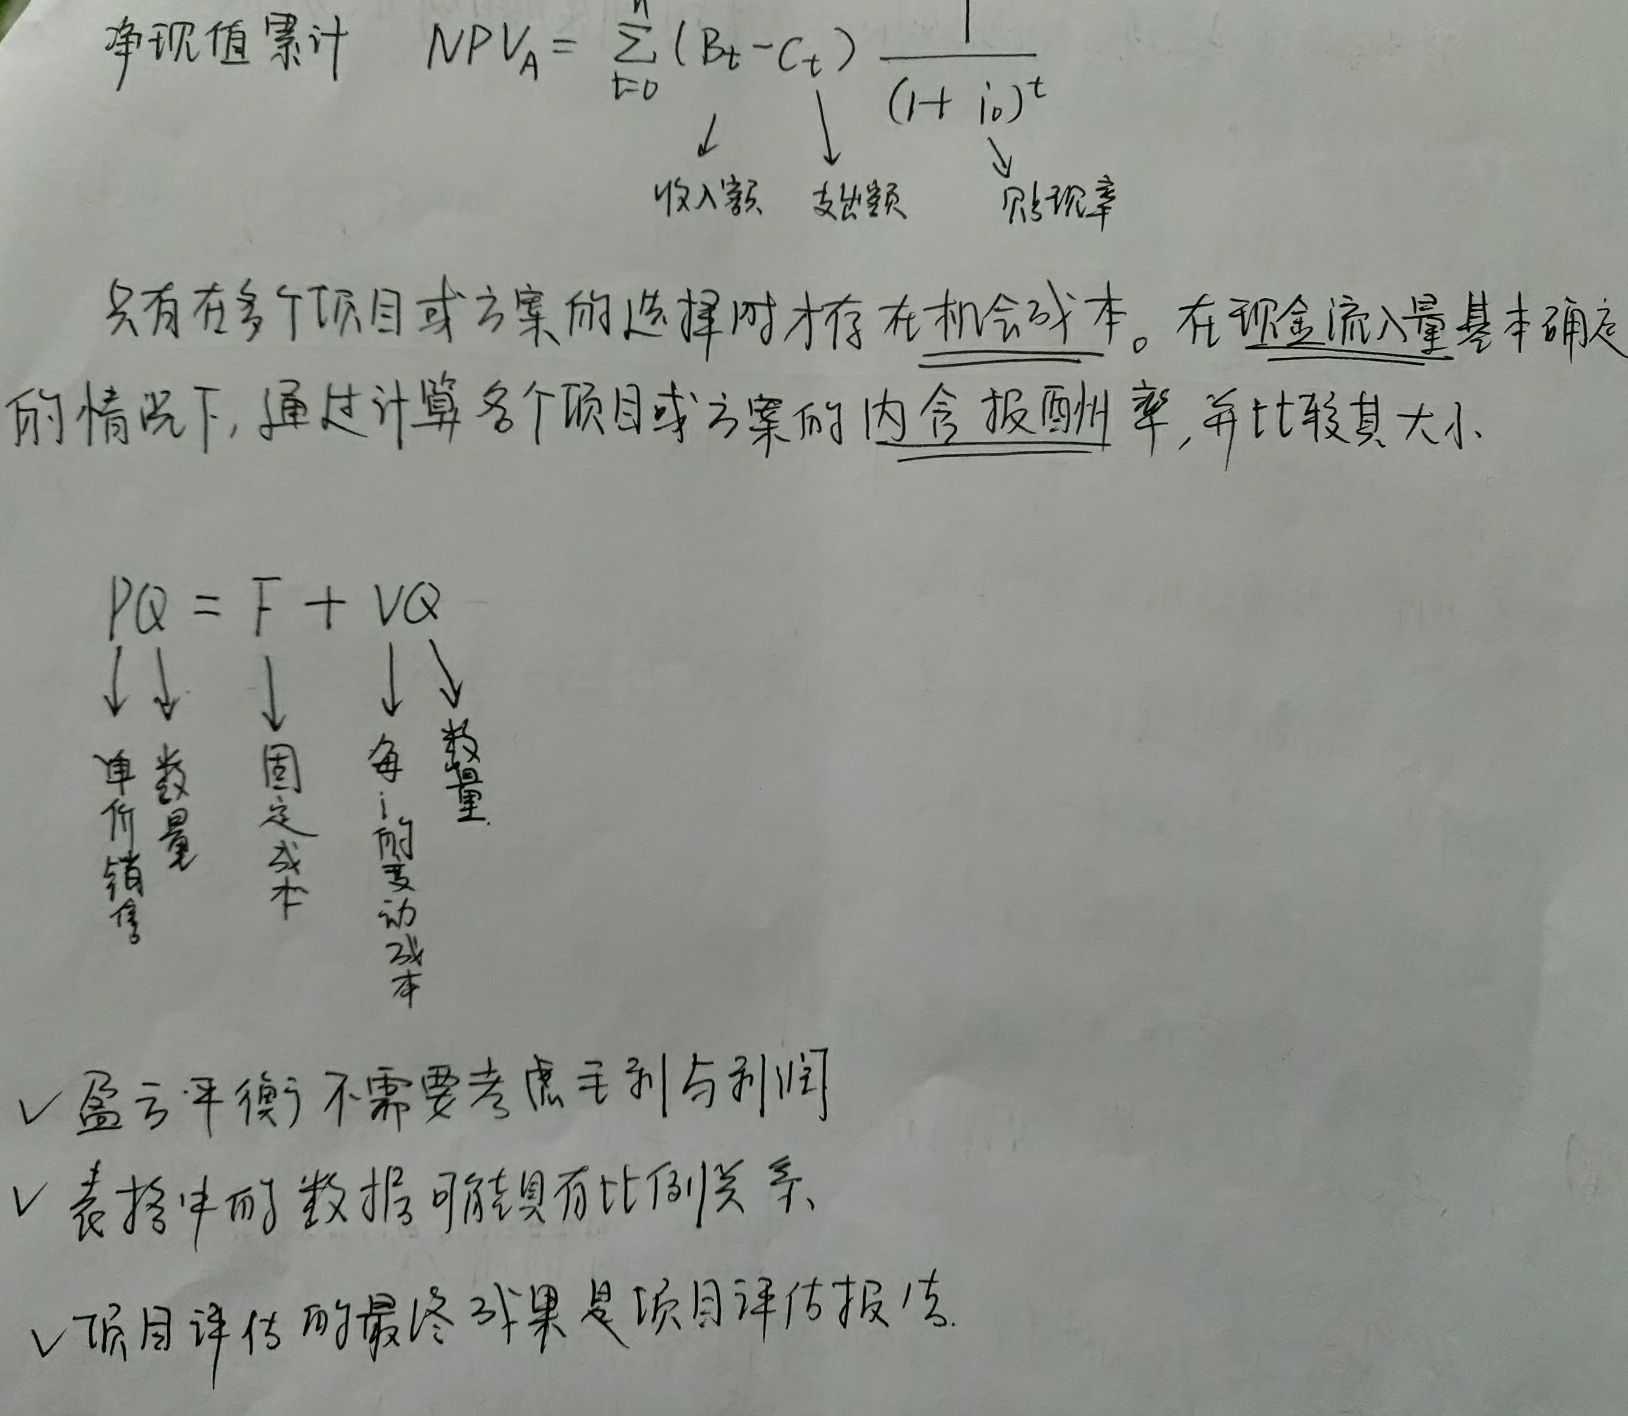 净现值累计 NPV_A = \sum_{t=0}^{n} (B_t - C_t) \frac{1}{(1+i_0)^t}
收入额 支出额 贴现率
只有在多个项目或方案的选择时才存在机会成本。在现金流入量基本确定
的情况下,通过计算各个项目或方案的内含报酬率,并比较其大小
PQ = F + VQ
单价销售 数量 固定成本 每i的变动成本 数量
✓ 盈亏平衡不需要考虑毛利与利润
✓ 表格中的数据可能具有比例关系
✓ 项目评估的最终成果是项目评估报告.